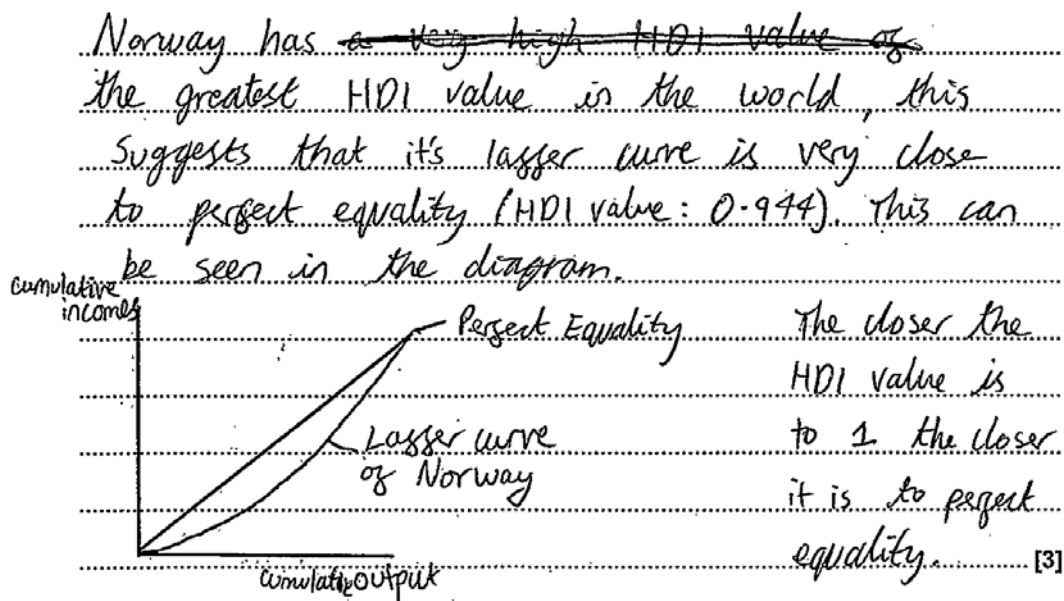 Norway has a very high HDI value of
the greatest HDI value in the world, this
suggests that it's lasser curve is very close
to perfect equality (HDI value: 0.944). This can
be seen in the diagram.
cumulative
incomes
Perfect Equality
Lasser curve
of Norway
cumulative output
The closer the
HDI value is
to 1 the closer
it is to perfect
equality.
[3]